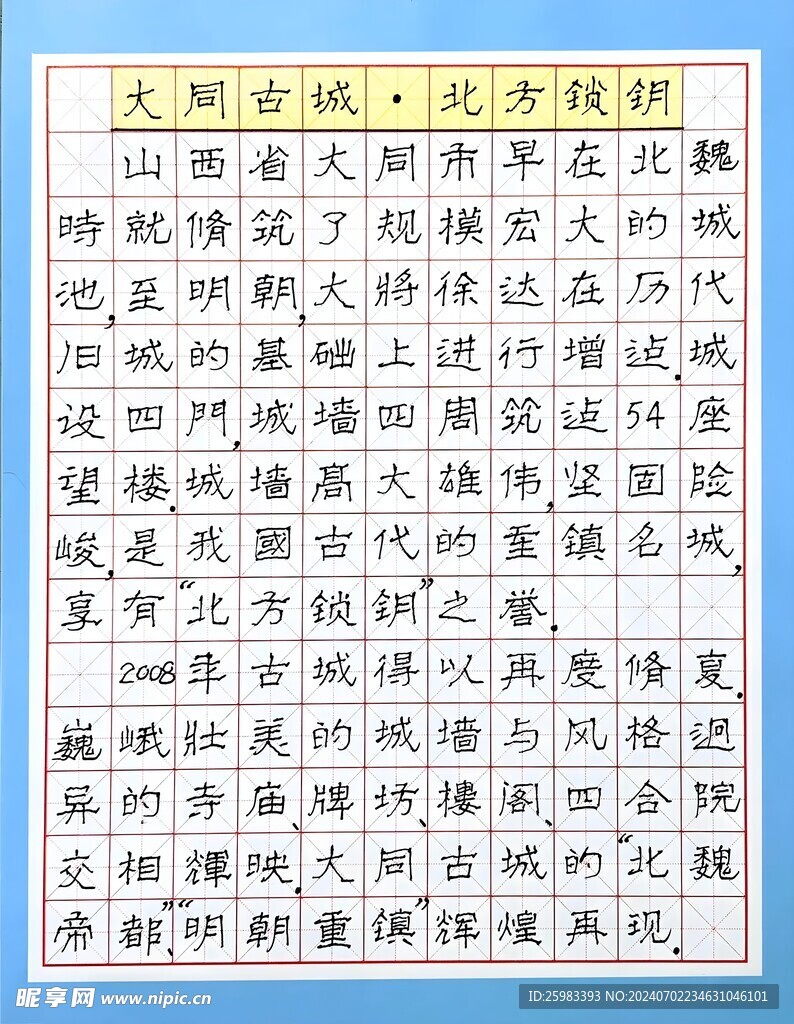 大同古城·北方锁钥
山西省大同市早在北魏
時就修筑了规模宏大的城
池,至明朝,大將徐达在历代
旧城的基础上进行增造.城
设四門,城墙四周筑造54座
望楼.城墙髙大雄伟,坚固险
峻,是我國古代的重鎮名城,
享有“北方锁钥”之誉.
2008年古城得以再度修复.
巍峨壮美的城墙与风格迥
异的寺庙、牌坊、樓阁、四合院
交相輝映.大同古城的“北魏
帝都”、“明朝重鎮”辉煌再现.
昵享网 www.nipic.cn
ID:25983393 NO:20240702234631046101